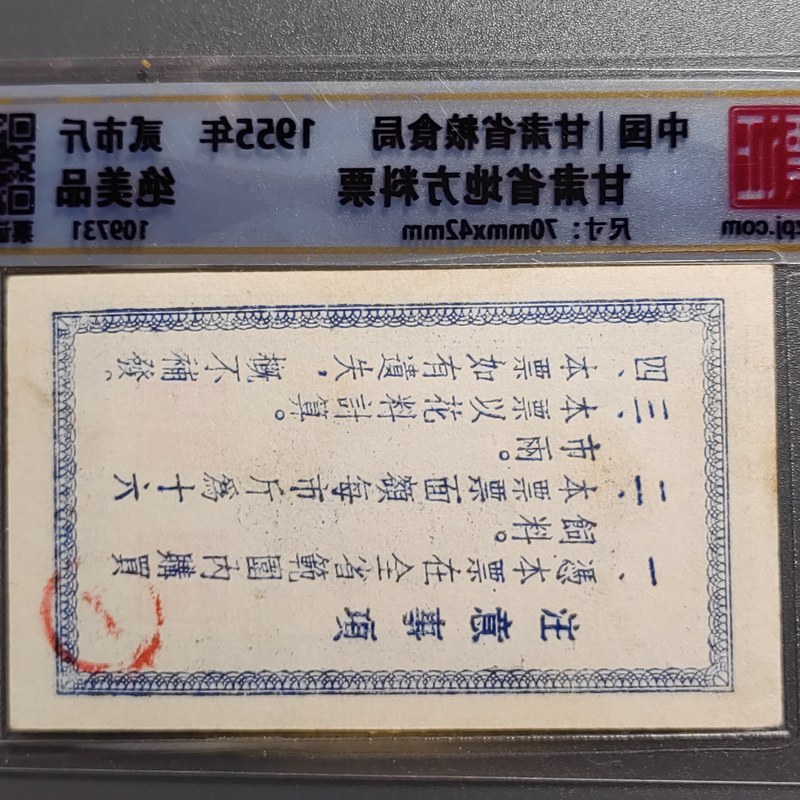 中国|甘肃省粮食局 1955年 贰市斤
甘肃省地方料票 绝美品
zpj.com 尺寸：70mmx42mm 109731
注意事項
一、憑本票在全省範圍内購買
飼料。
二、本票票面額每市斤為十六
市兩。
三、本票以花料計算。
四、本票如有遺失，概不補發、